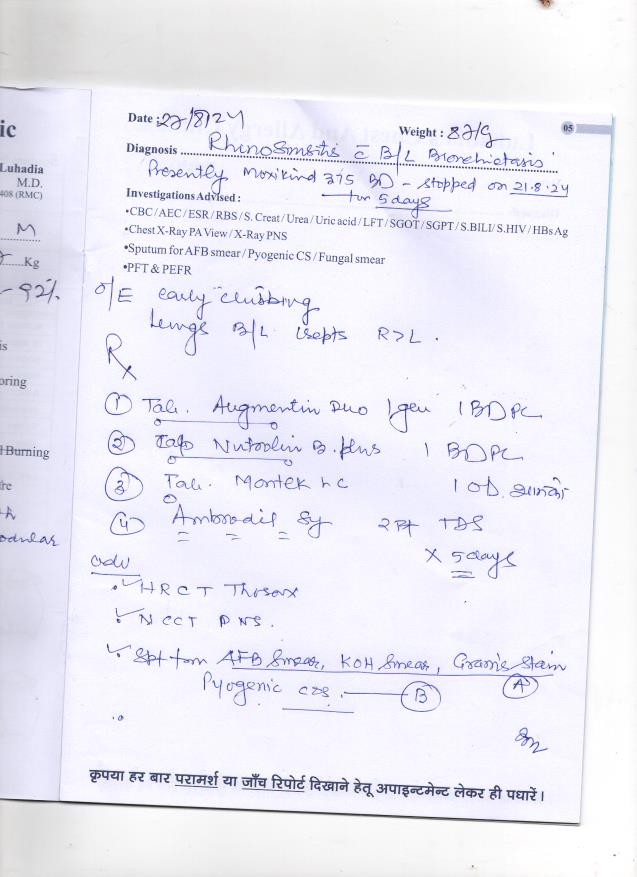 ic
Luhadia
M.D.
408 (RMC)
M
Kg
- 92%
is
oring
Burning
re
odular
05
Date : 22/8/24 Weight :
Diagnosis Rhinosinsitis c̄ B/L Bronchictasis
Presently Moxikind 375 BD - stopped on 21.8.24
for 5 days
Investigations Advised :
•CBC / AEC / ESR / RBS / S. Creat / Urea / Uric acid / LFT / SGOT / SGPT / S.BILI / S.HIV / HBs Ag
•Chest X-Ray PA View / X-Ray PNS
•Sputum for AFB smear / Pyogenic CS / Fungal smear
•PFT & PEFR
O/E early clubbing
Lungs B/L R>L.
Rx
① Tab. Augmentin Duo 1 gm 1 BD PC
② Cap B. plus 1 BD PC
③ Tab. Montek LC 1 OD
④ Ambrodil Sy 2 TDS
x 5 days
adv
✓ HRCT Thorax
✓ NCCT PNS.
✓ Spt for AFB Smear, KOH Smear, Gram's Stain
(A)
Pyogenic c/s. (B)
कृपया हर बार परामर्श या जाँच रिपोर्ट दिखाने हेतू अपाइन्टमेन्ट लेकर ही पधारें।